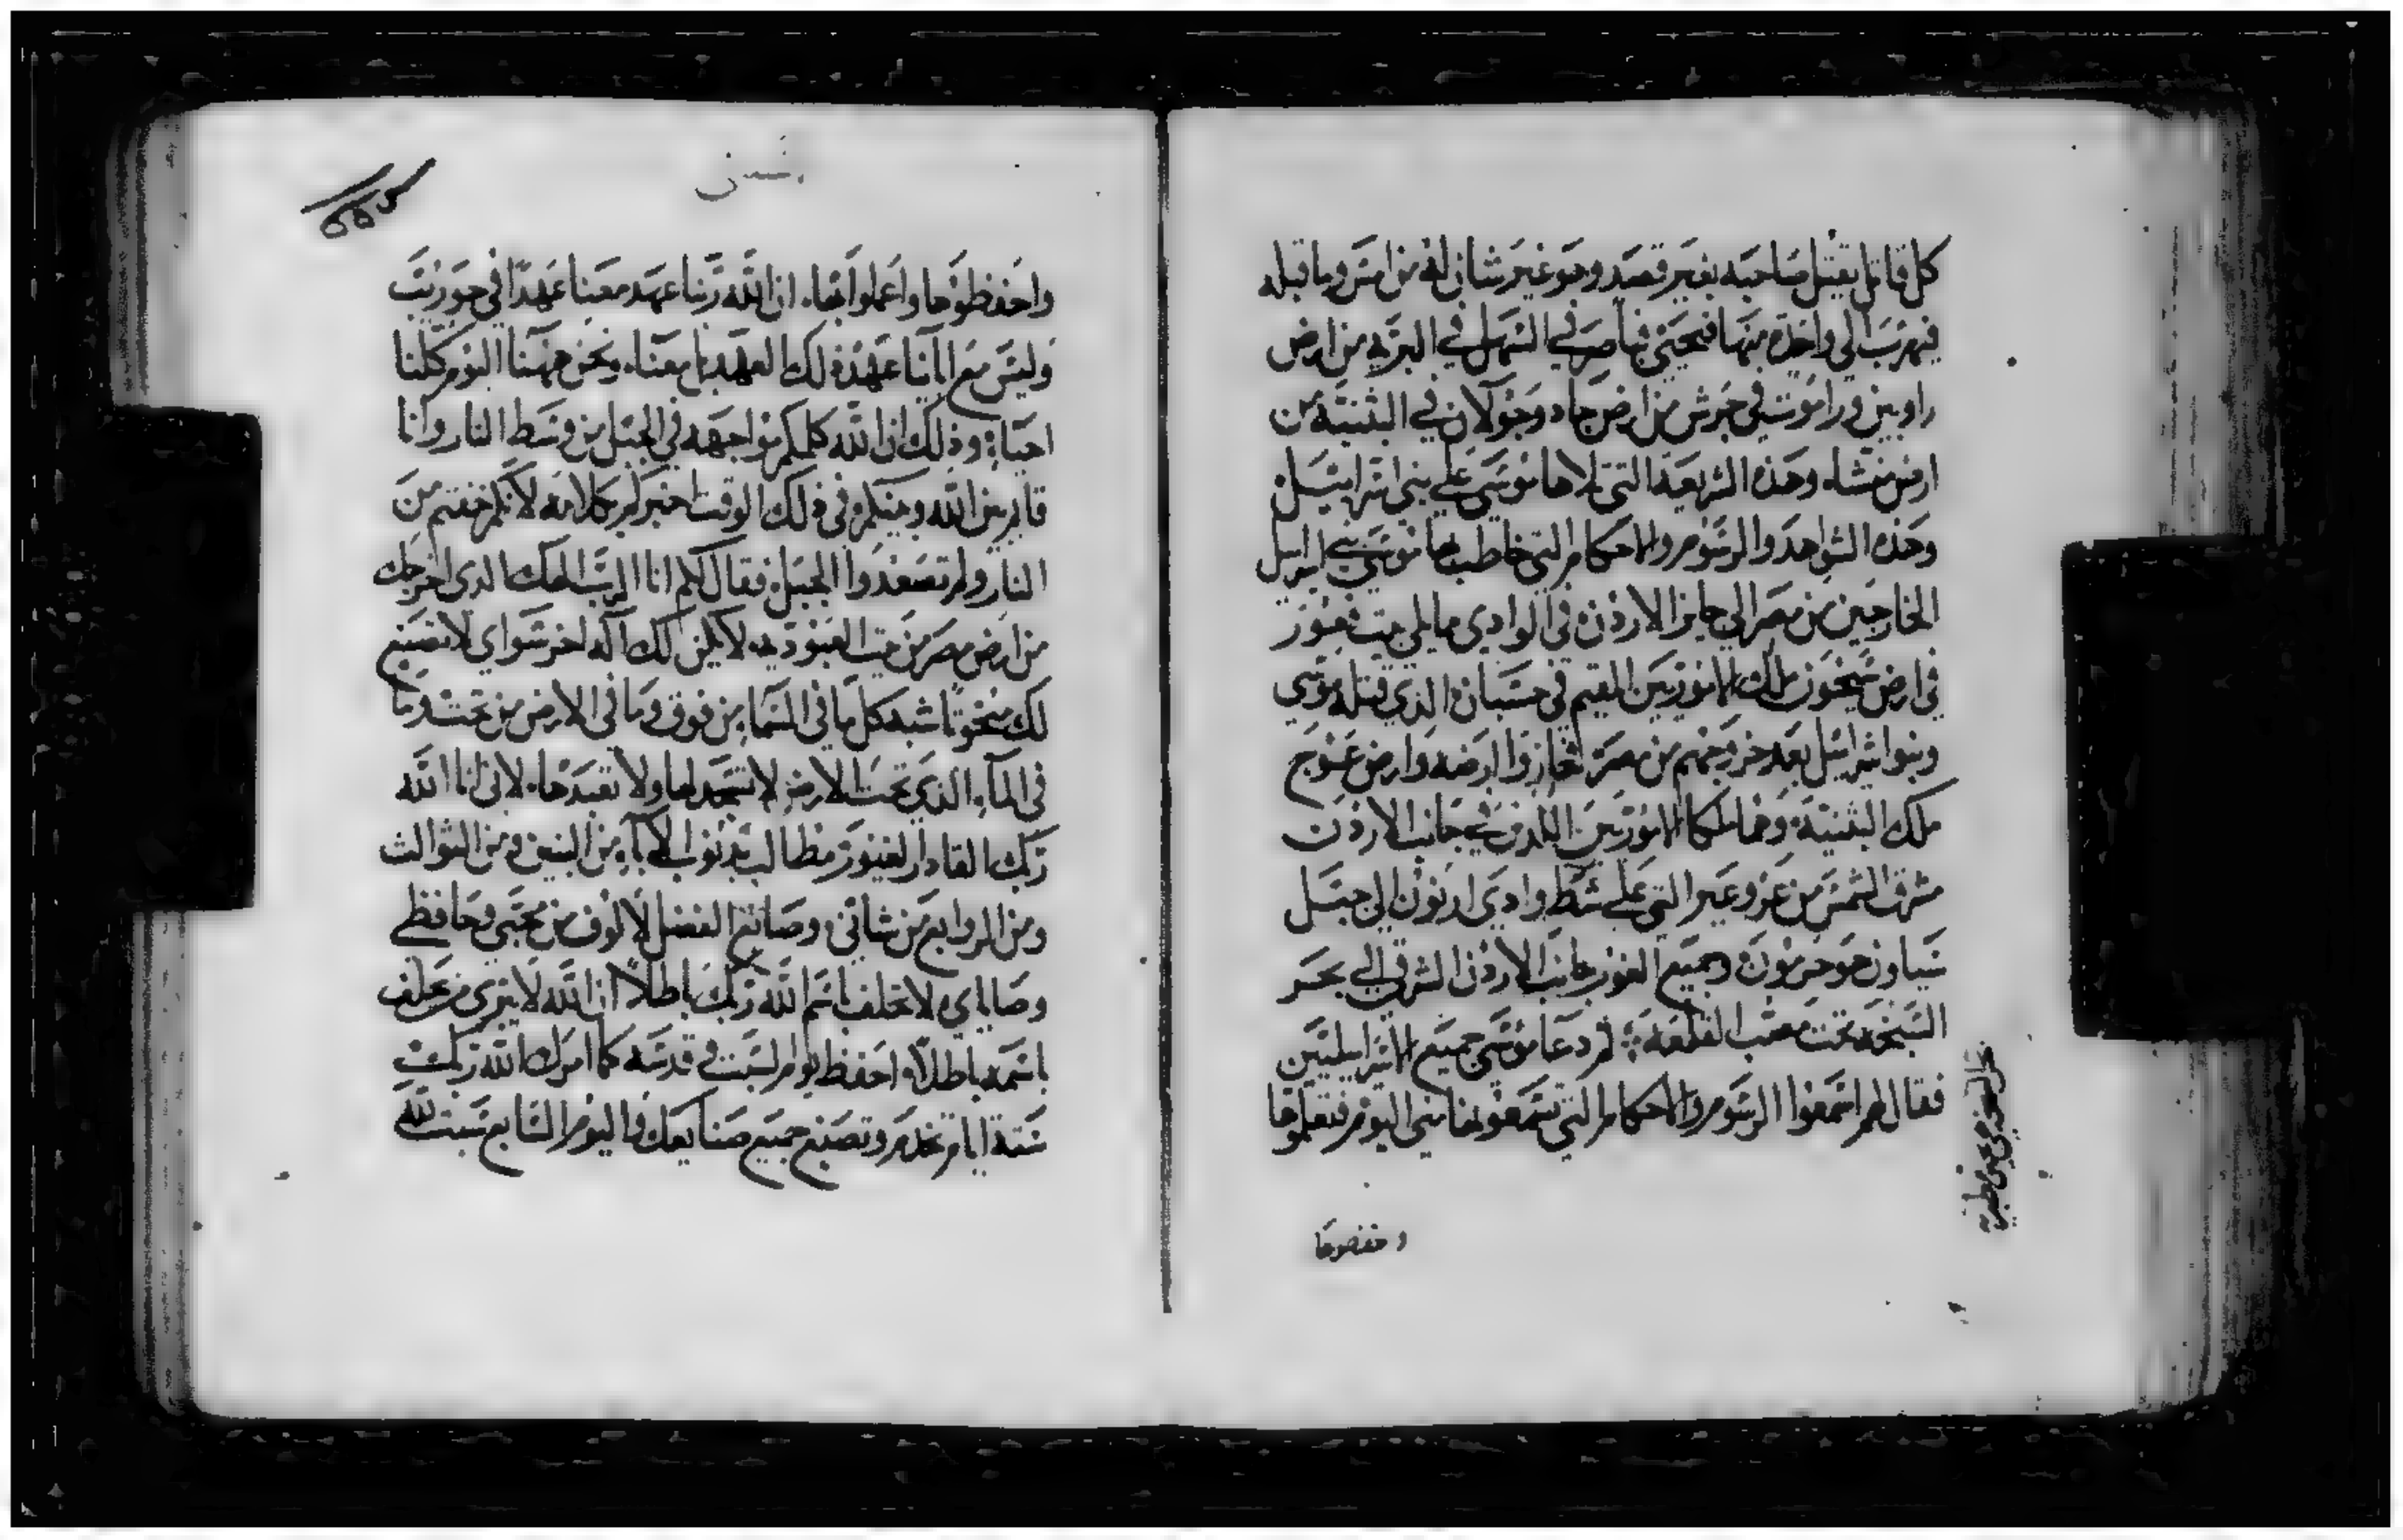 كل قاتل يقتل صاحبه بغير قصد وهو غير شان له من امس وما قبله
فيهرب الي واحدة منها فيحيي باصر في السهل في البريه من ارض
راوبين وراموت في جرش من ارض جاد وجولان في البثنيه من
ارض منشاه وهذه الشريعة التي تلاها موسي علي بني اسراييل
وهذه الشواهد والرسوم والاحكام التي خاطب بها موسي بني اسرايل
الخارجين من مصر الي جايز الاردن في الوادي ما يلي بيت فعور
في ارض سيحون ملك الامورين المقيم في حسبان الذي قتله موسي
وبنوا اسرايل بعد خروجهم من مصر فحازوا ارضه وارض عوج
ملك البثنية وهما ملكا الامورين اللذين في جانب الاردن
مشرق الشمس من عروعير التي علي شط وادي ارنون الي جبل
سياون هو حرمون وجميع الغور جانب الاردن الشرقي الي بحر
السبخه تحت مصب القلعة ثم دعا موسي جميع الاسراييليين
فقال لهم اسمعوا الرسوم والاحكام التي تسمعونها مني اليوم فتعلموها
وحفضوها
واحفظوها واعملوا بها ان الله ربنا عهد معنا عهدا في حوريب
وليس مع ابآينا عهد ذلك العهد بل معنا ونحن ههنا اليوم كلنا
احياء وذلك ان الله كلمكم مواجهه في الجبل من وسط النار وانا
قايم بين الله وبينكم في ذلك الوقت اخبركم بكلامه لانكم خفتم من
النار ولم تصعدوا الجبل فقال لكم انا الرب الهك الدى اخرجك
من ارض مصر من بيت العبوديه لا يكن لك اله اخر سواي لا تصنع
لك منحوتا شبه كل ما في السما من فوق وما في الارض من تحت وما
في المآء الذي تحت الارض لا تسجد لها ولا تعبدها لاني انا الله
ربك القادر الغيور مطالب بذنوب الابآء من البنين ومن الثوالث
ومن الروابع من شانى وصانع الفضل لالوف من محبي وحافظي
وصاياي لا تحلف باسم الله ربك باطلا ان الله لا يبرى من حلف
باسمه باطلا احفظ يوم السبت وقدسه كما امرك الله ربك
ستة ايام تخدم وتصنع جميع صنايعك واليوم السابع سبت لله